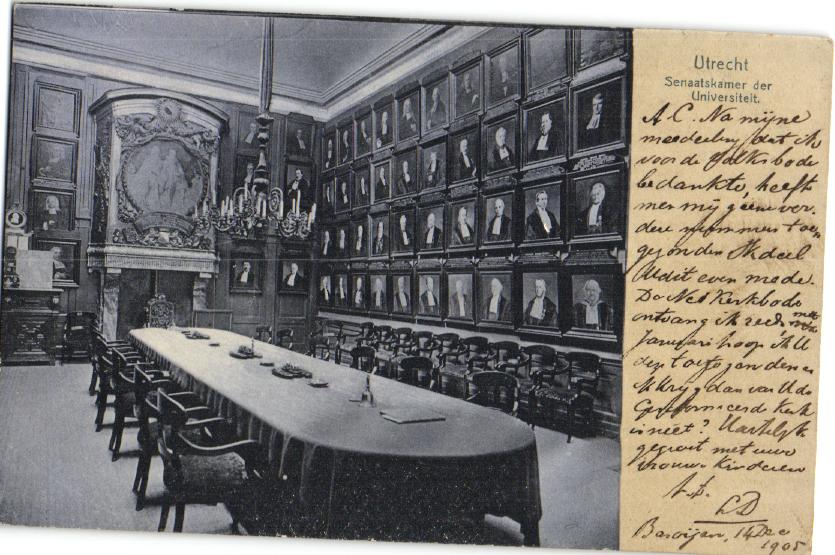 Utrecht
Senaatskamer der
Universiteit.
A.C. Na mijne
mededeeling dat ik
voor de Volksbode
bedankte, heeft
men mij geene ver-
dere nummers toe-
gezonden Ik deel
U dit even mede.
De Ned Kerkbode
ontvang ik reeds
Januari hoop ik U
deze toe te zenden en
ik krijg dan van U de
Gereformeerde Kerk
is niet? Hartelijk
gegroet met uwe
vrouw & kinderen
t.t.
LD
14 Dec
1905